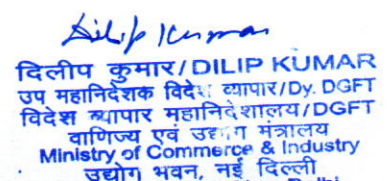 Dilip Kumar
दिलीप कुमार/DILIP KUMAR
उप महानिदेशक विदेश व्यापार/Dy. DGFT
विदेश व्यापार महानिदेशालय/DGFT
वाणिज्य एवं उद्योग मंत्रालय
Ministry of Commerce & Industry
उद्योग भवन, नई दिल्ली
Delhi